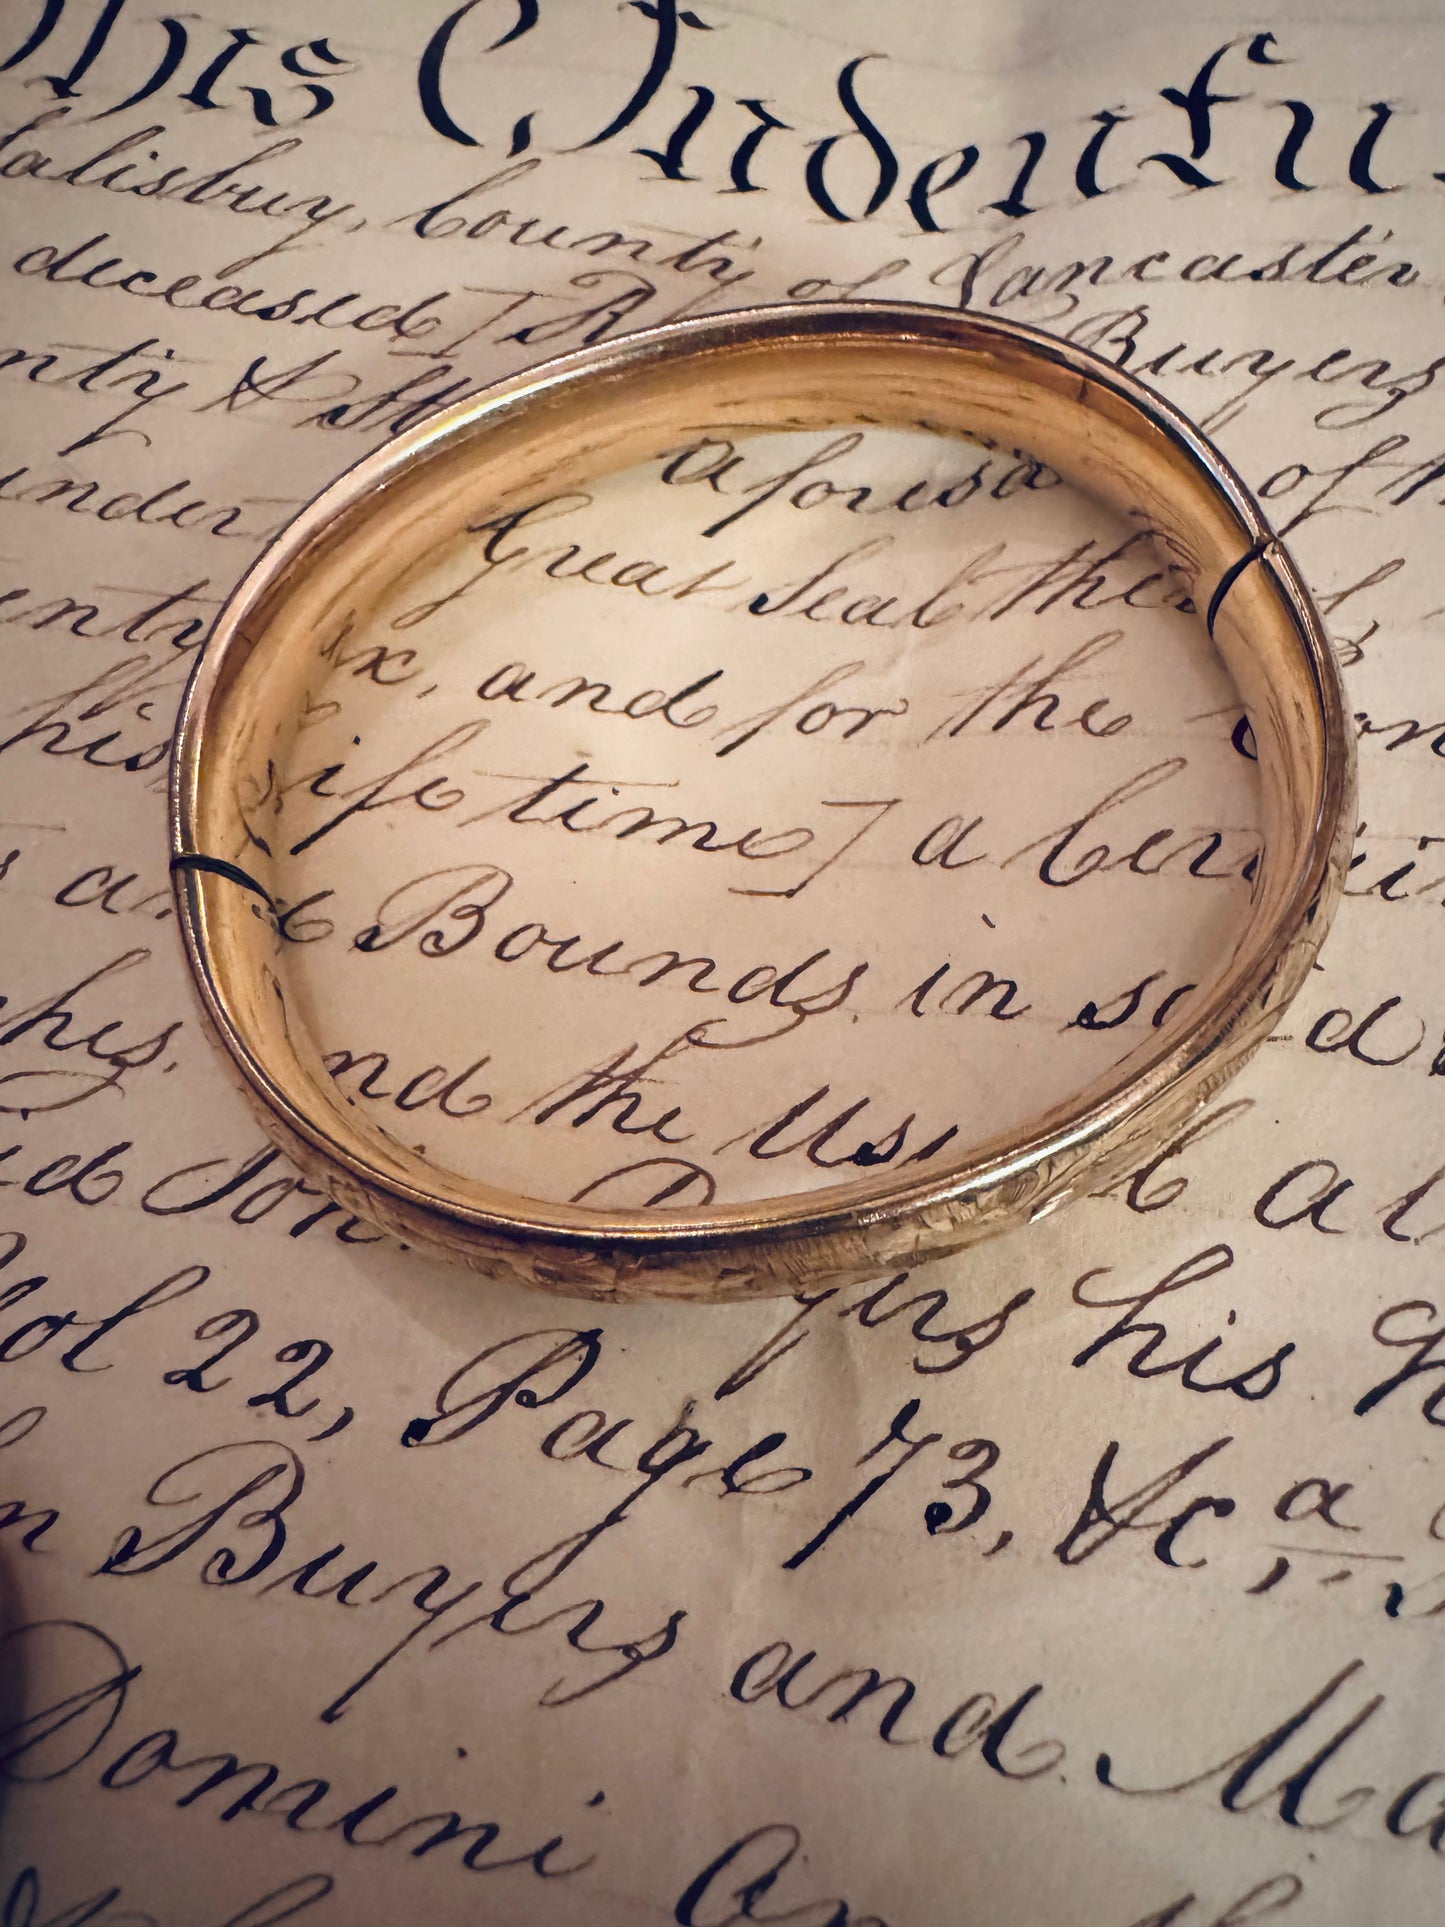 This Indentu
Salisbury, County of Lancaster
deceased] R Buyers
nty & St of
under aforesa
Great Seal
enty
x, and for the
his life time] a cer
Bounds in
hes. and the Use
id Son al
Buyers his
Vol 22, Page 73, &c a
n Buyers and Ma
Domini